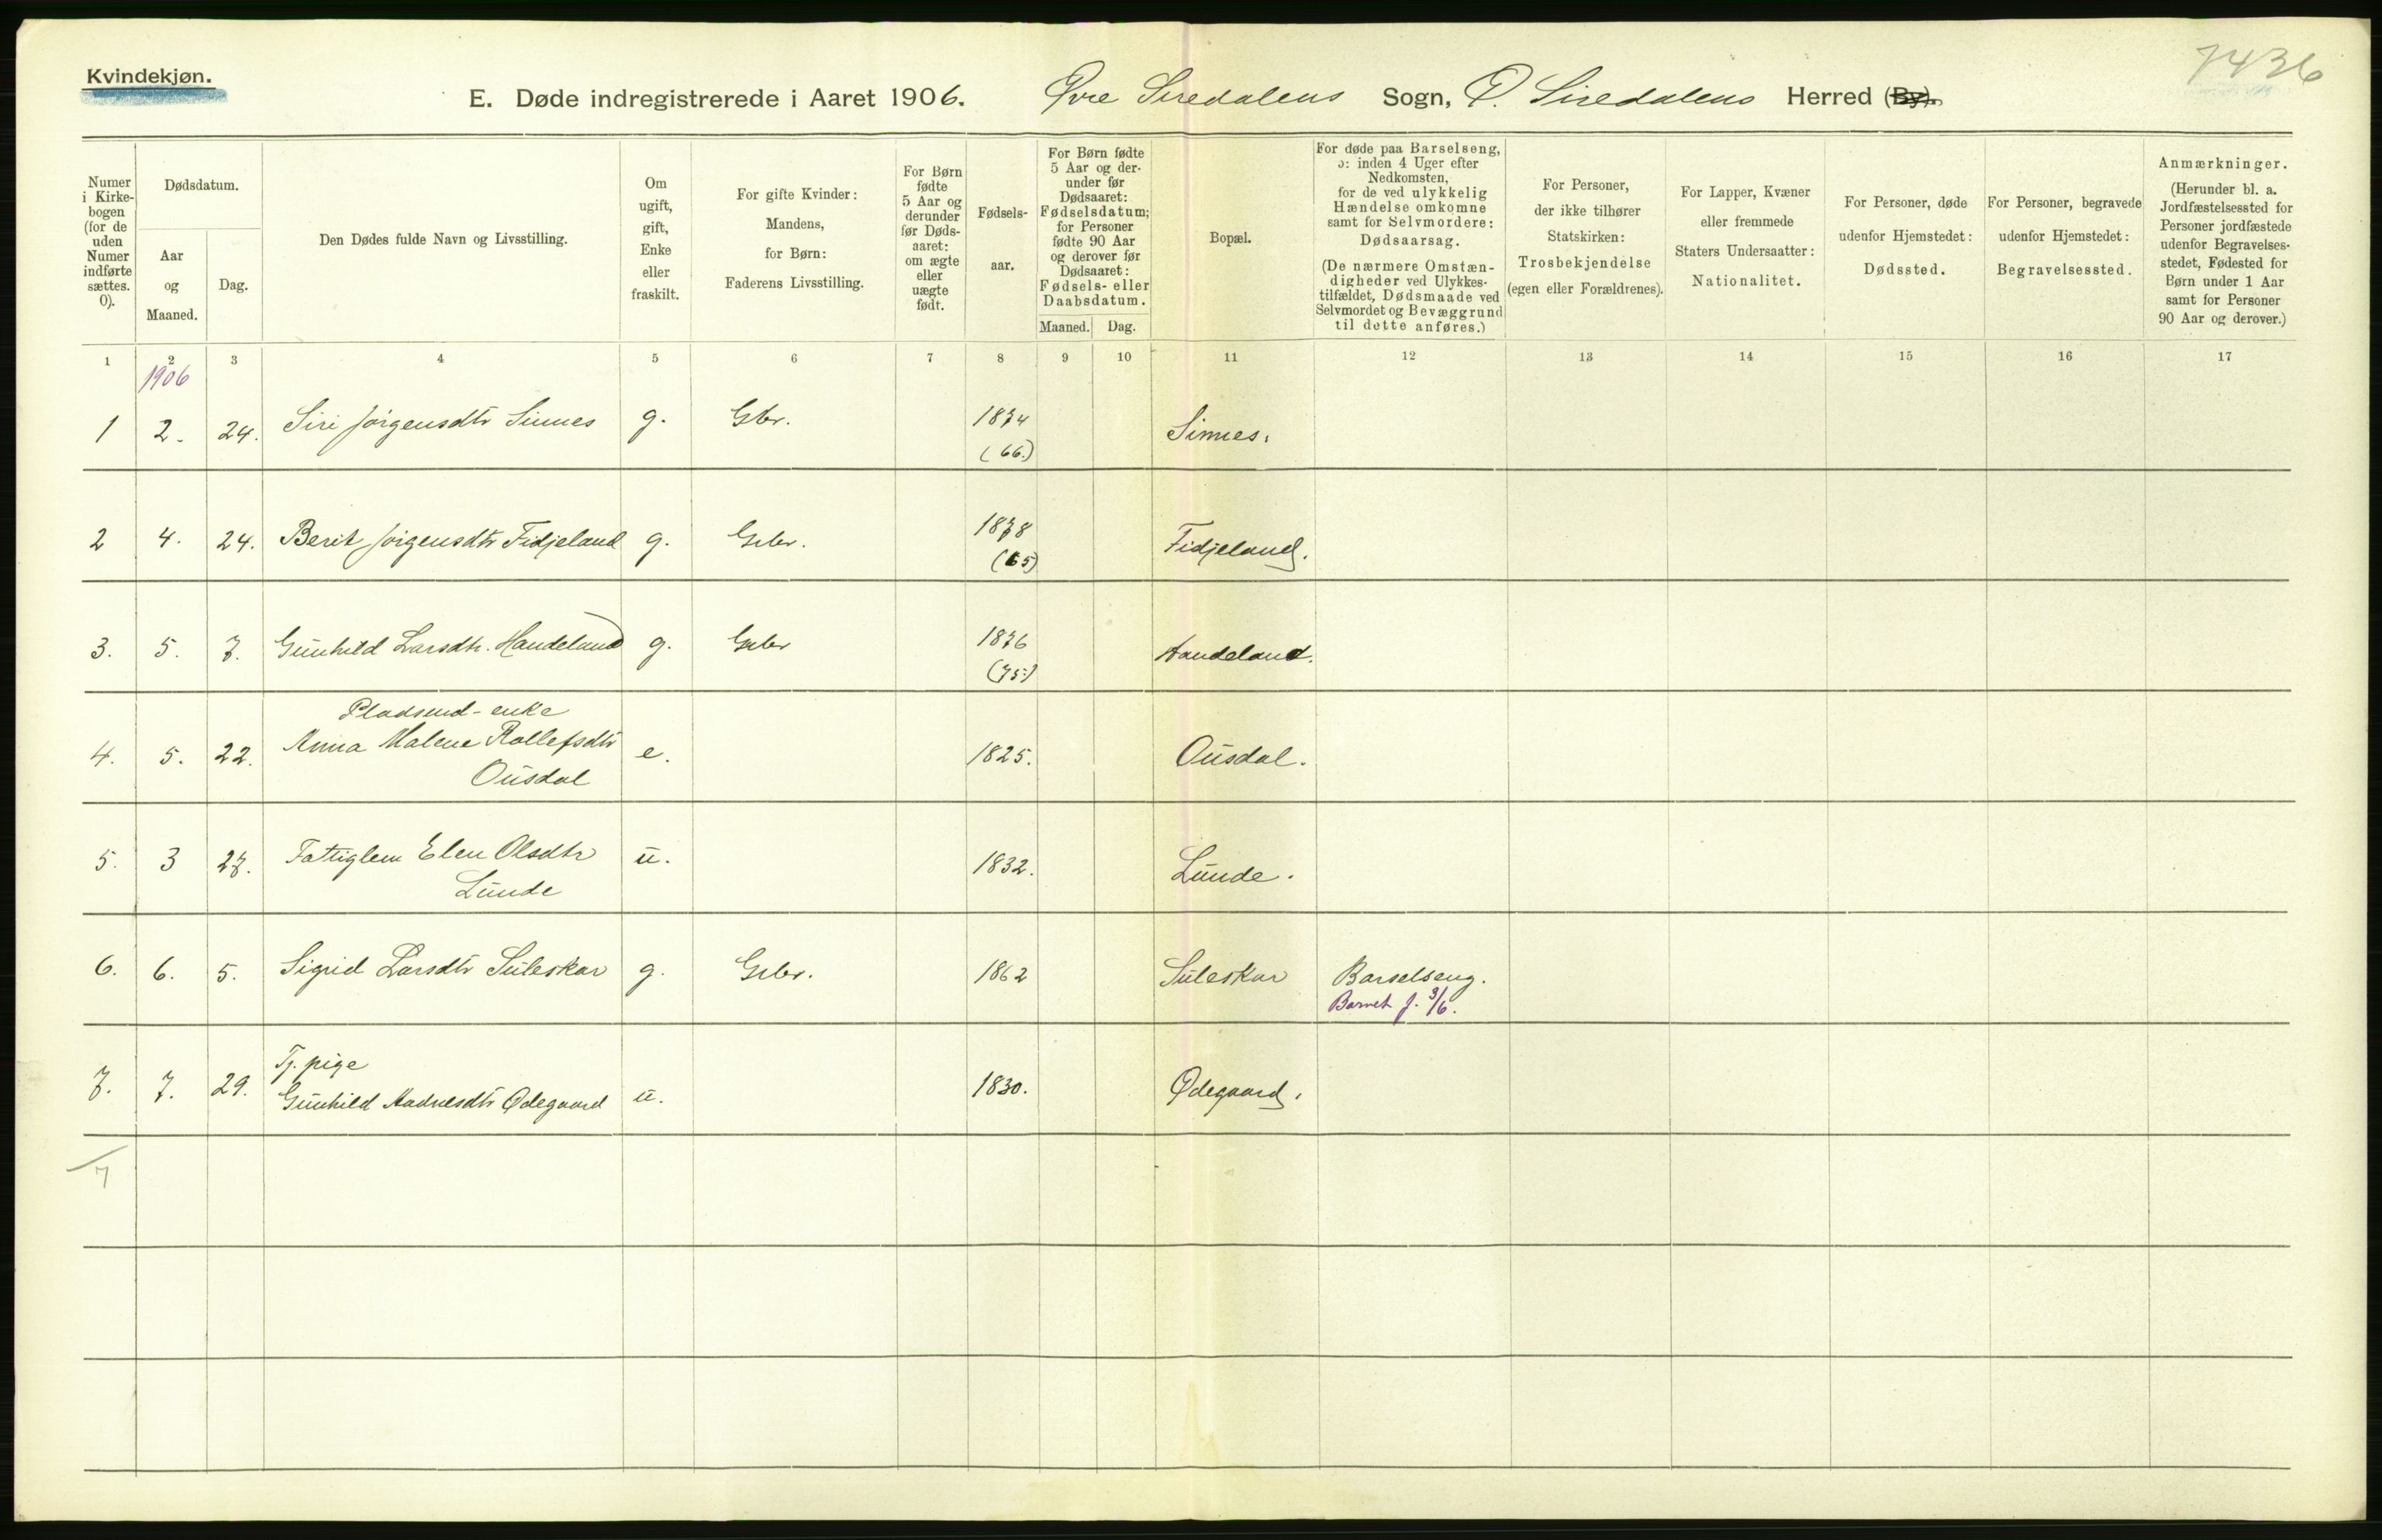 Kvindekjøn.
7436
E. Døde indregistrerede i Aaret 1906. Øvre Siredalens Sogn, Ø. Siredalens Herred (By).
Numer i Kirkebogen (for de uden Numer indførte sættes. 0).
Dødsdatum.
Aar og Maaned.
Dag.
Den Dødes fulde Navn og Livsstilling.
Om ugift, gift, Enke eller fraskilt.
For gifte Kvinder: Mandens, for Børn: Faderens Livsstilling.
For Børn fødte 5 Aar og derunder før Dødsaaret: om ægte eller uægte født.
Fødselsaar.
For Børn fødte 5 Aar og derunder før Dødsaaret: Fødselsdatum; for Personer fødte 90 Aar og derover før Dødsaaret: Fødsels- eller Daabsdatum.
Maaned. Dag.
Bopæl.
For døde paa Barselseng, ɔ: inden 4 Uger efter Nedkomsten, for de ved ulykkelig Hændelse omkomne samt for Selvmordere: Dødsaarsag. (De nærmere Omstændigheder ved Ulykkestilfældet, Dødsmaade ved Selvmordet og Bevæggrund til dette anføres.)
For Personer, der ikke tilhører Statskirken: Trosbekjendelse (egen eller Forældrenes).
For Lapper, Kvæner eller fremmede Staters Undersaatter: Nationalitet.
For Personer, døde udenfor Hjemstedet: Dødssted.
For Personer, begravede udenfor Hjemstedet: Begravelsessted.
Anmærkninger. (Herunder bl. a. Jordfæstelsessted for Personer jordfæstede udenfor Begravelsesstedet, Fødested for Børn under 1 Aar samt for Personer 90 Aar og derover.)
1 2 3 4 5 6 7 8 9 10 11 12 13 14 15 16 17
1906
1 2. 24. Siri Jørgensdtr Sinnes g. Gbr. 1874 Sinnes.
(66.)
2 4. 24. Berit Jørgensdtr Fidjeland g. Grbr. 1878 Fidjeland.
(65)
3. 5. 7. Gunhild Larsdtr. Handeland g. Grbr 1876 Handeland.
(75.)
Pladsmd-enke
4. 5. 22. Anna Malene Rollefsdtr e. 1825. Ousdal.
Ousdal
5. 3 27. Fattiglem Elen Olsdtr u. 1832. Lunde.
Lunde
6. 6. 5. Sigrid Larsdtr Suleskar g. Grbr. 1862 Suleskar Barselseng.
Barnet f. 3/6.
Tj. pige
7. 7. 29. Gunhild Aadnesdtr Ødegaard u. 1830. Ødegaard.
7